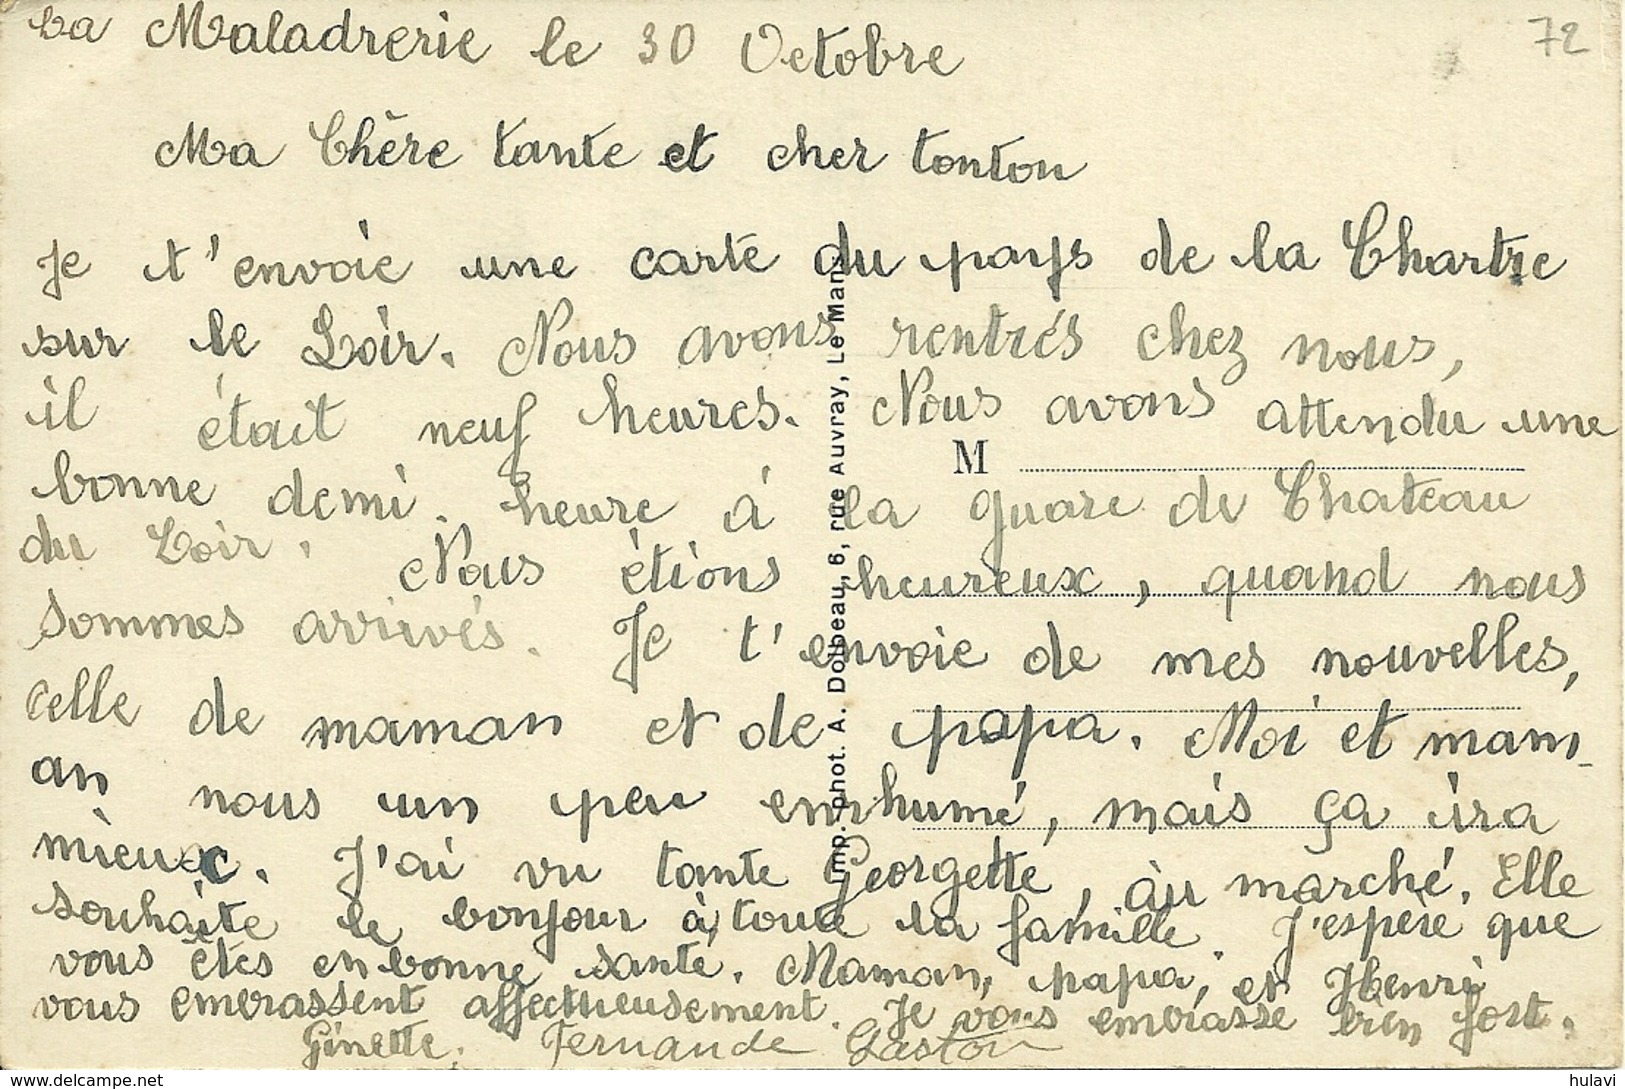 La Maladrerie le 30 Octobre
72
Ma Chère tante et cher tonton
Je t'envoie une carte du pays de la Chartre
sur le Loir. Nous avons rentrés chez nous,
il était neuf heures. Nous avons attendu une
bonne demi. heure à la guare de Chateau
du Loir. Nous étions heureux, quand nous
sommes arrivés. Je t'envoie de mes nouvelles,
celle de maman et de papa. Moi et mam-
an nous un peu enrhumé, mais ça ira
mieux. J'ai vu tante Georgette, au marché. Elle
souhaite le bonjour à toute la famille. J'espère que
vous êtes en bonne santé. Maman, papa, et Henri
vous embrassent affectueusement. Je vous embrasse bien fort.
Ginette. Fernande Gaston
M
Imp. phot. A. Dolbeau, 6, rue Auvray, Le Mans
delcampe.net
hulavi